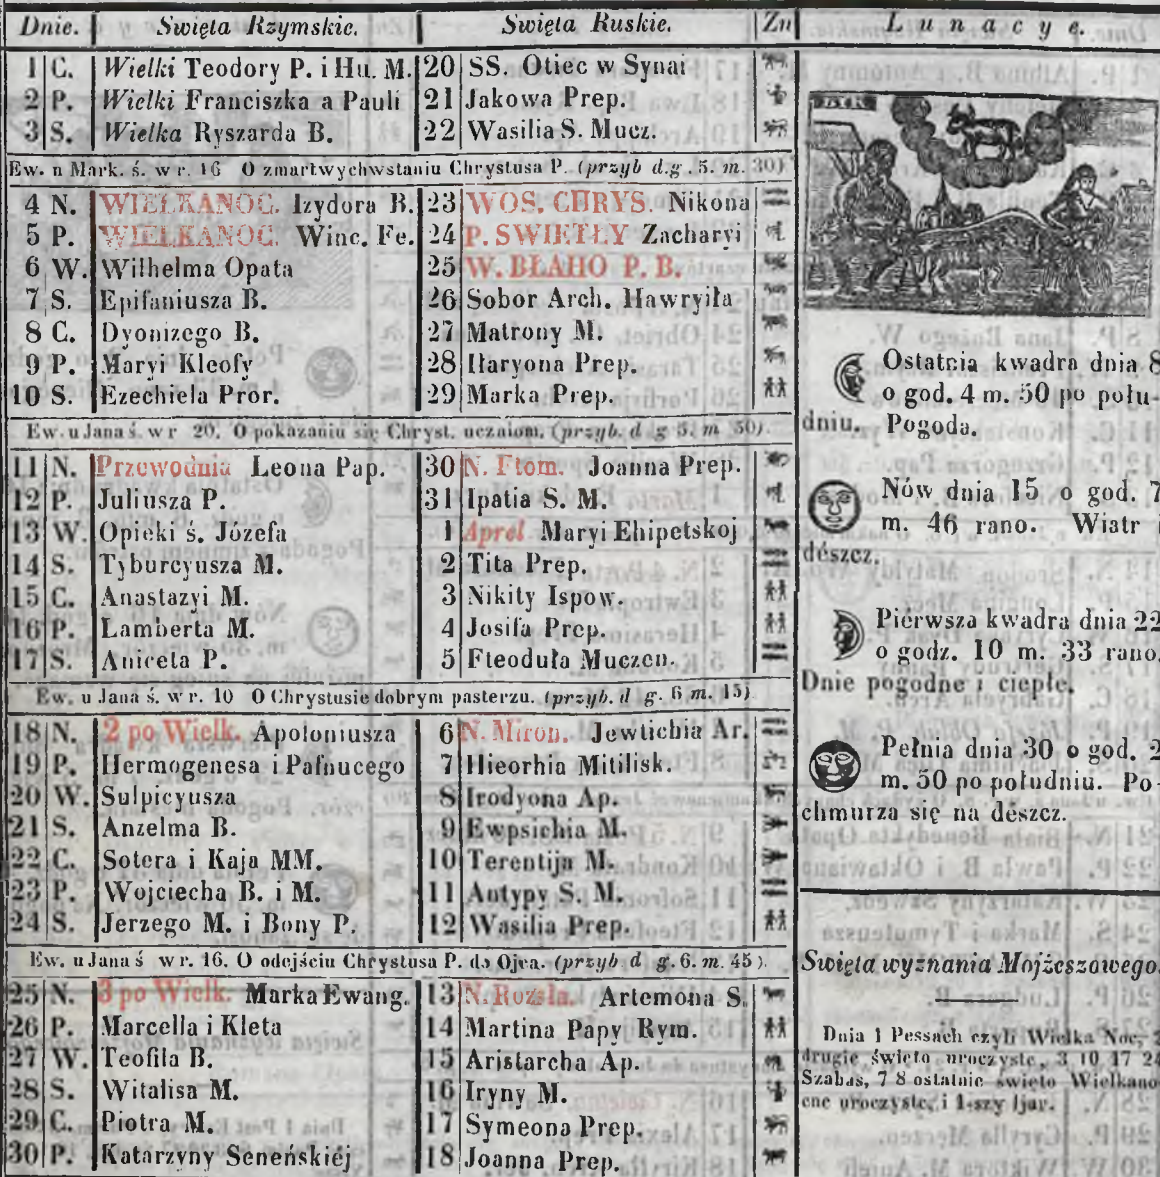 Dnie. Swięta Rzymskie. Swięta Ruskie. Zn
1 C. Wielki Teodory P. i Hu. M. 20 SS. Otiec w Synai
2 P. Wielki Franciszka a Pauli 21 Jakowa Prep.
3 S. Wielka Ryszarda B. 22 Wasilia S. Mucz.
Ew. n Mark. ś. w r. 16 O zmartwychwstaniu Chrystusa P. (przyb d.g. 5. m. 30)
4 N. WIELKANOC. Izydora B. 23 WOS. CHRYS. Nikona
5 P. WIELKANOC. Winc. Fe. 24 P. SWIETŁY Zacharyi
6 W. Wilhelma Opata 25 W. BŁAHO P. B.
7 S. Epifaniusza B. 26 Sobor Arch. Hawryiła
8 C. Dyonizego B. 27 Matrony M.
9 P. Maryi Kleofy 28 Ilaryona Prep.
10 S. Ezechiela Pror. 29 Marka Prep.
Ew. u Jana ś. w r 20. O pokazaniu się Chryst. uczniom. (przyb. d g 5. m 50)
11 N. Przewodnia Leona Pap. 30 N. Ftom. Joanna Prep.
12 P. Juliusza P. 31 Ipatia S. M.
13 W. Opieki ś. Józefa 1 Aprel Maryi Ehipetskoj
14 S. Tyburcyusza M. 2 Tita Prep.
15 C. Anastazyi M. 3 Nikity Ispow.
16 P. Lamberta M. 4 Josifa Prep.
17 S. Aniceta P. 5 Fteoduła Muczen.
Ew. u Jana ś. w r. 10 O Chrystusie dobrym pasterzu. (przyb. d g. 6 m. 15)
18 N. 2 po Wielk. Apoloniusza 6 N. Miron. Jewtichia Ar.
19 P. Hermogenesa i Pafnucego 7 Hieorhia Mitilisk.
20 W. Sulpicyusza 8 Irodyona Ap.
21 S. Anzelma B. 9 Ewpsichia M.
22 C. Sotera i Kaja MM. 10 Terentija M.
23 P. Wojciecha B. i M. 11 Antypy S. M.
24 S. Jerzego M. i Bony P. 12 Wasilia Prep.
Ew. u Jana ś w r. 16. O odejściu Chrystusa P. do Ojca. (przyb d g. 6. m. 45).
25 N. 3 po Wielk. Marka Ewang. 13 N. Rozsla. Artemona S.
26 P. Marcella i Kleta 14 Martina Papy Rym.
27 W. Teofila B. 15 Aristarcha Ap.
28 S. Witalisa M. 16 Iryny M.
29 C. Piotra M. 17 Symeona Prep.
30 P. Katarzyny Seneńskiéj 18 Joanna Prep.
Lunacye.
Ostatnia kwadra dnia 8
o god. 4 m. 50 po połu-
dniu. Pogoda.
Nów dnia 15 o god. 7
m. 46 rano. Wiatr i
dészcz.
Piérwsza kwadra dnia 22
o godz. 10 m. 33 rano.
Dnie pogodne i ciepłe.
Pełnia dnia 30 o god. 2
m. 50 po południu. Po-
chmurza się na dészcz.
Swięta wyznania Mojżeszowego.
Dnia 1 Pessach czyli Wielka Noc, 2
drugie święto uroczyste, 3 10 17 24
Szabas, 7 8 ostatnie święto Wielkano
cne uroczyste, i 1-szy Ijar.